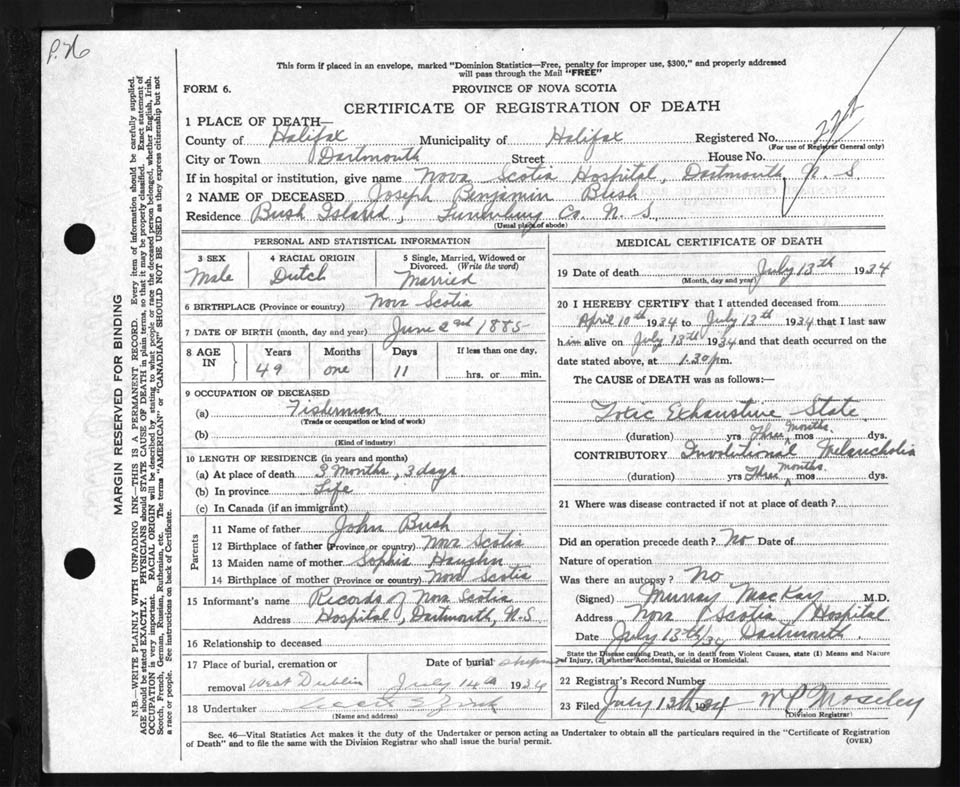 P. 76
This form if placed in an envelope, marked "Dominion Statistics—Free, penalty for improper use, $300," and properly addressed
will pass through the Mail "FREE"
FORM 6.
PROVINCE OF NOVA SCOTIA
CERTIFICATE OF REGISTRATION OF DEATH
1 PLACE OF DEATH—
County of Halifax Municipality of Halifax Registered No.
(For use of Registrar General only)
City or Town Dartmouth Street House No.
If in hospital or institution, give name Nova Scotia Hospital, Dartmouth N. S
2 NAME OF DECEASED Joseph Benjamin Bush
Residence Bush Island, Lunenburg Co. N. S
(Usual place of abode)
PERSONAL AND STATISTICAL INFORMATION
3 SEX 4 RACIAL ORIGIN 5 Single, Married, Widowed or
Divorced. (Write the word)
Male Dutch Married
6 BIRTHPLACE (Province or country) Nova Scotia
7 DATE OF BIRTH (month, day and year) June 2nd 1885
8 AGE IN Years Months Days If less than one day,
49 one 11 hrs. or min.
9 OCCUPATION OF DECEASED
(a) Fisherman
(Trade or occupation or kind of work)
(b)
(Kind of industry)
10 LENGTH OF RESIDENCE (in years and months)
(a) At place of death 3 Months, 3 days
(b) In province Life
(c) In Canada (if an immigrant)
Parents
11 Name of father John Bush
12 Birthplace of father (Province or country) Nova Scotia
13 Maiden name of mother Sophia Haughn
14 Birthplace of mother (Province or country) Nova Scotia
15 Informant's name Records of Nova Scotia
Address Hospital, Dartmouth, N.S
16 Relationship to deceased
17 Place of burial, cremation or Date of burial
removal West Dublin July 14th 1934
18 Undertaker
(Name and address)
MEDICAL CERTIFICATE OF DEATH
19 Date of death July 13th 1934
(Month, day and year)
20 I HEREBY CERTIFY that I attended deceased from
April 10th 1934 to July 13th 1934 that I last saw
him alive on July 13th 1934 and that death occurred on the
date stated above, at 1.30 p m.
The CAUSE of DEATH was as follows:—
Toxic Exhaustive State
(duration) yrs Three Months. mos dys.
CONTRIBUTORY Involutional Melancholia
(duration) yrs Three Months. mos dys.
21 Where was disease contracted if not at place of death?
Did an operation precede death? No Date of
Nature of operation
Was there an autopsy? No
(Signed) Murray MacKay M.D.
Address Nova Scotia Hospital
Date July 13th/34 Dartmouth.
State the Disease causing Death, or in death from Violent Causes, state (1) Means and Nature
of Injury, (2) whether Accidental, Suicidal or Homicidal.
22 Registrar's Record Number
23 Filed July 13th 1934 W. C. Moseley
(Division Registrar)
Sec. 46—Vital Statistics Act makes it the duty of the Undertaker or person acting as Undertaker to obtain all the particulars required in the "Certificate of Registration
of Death" and to file the same with the Division Registrar who shall issue the burial permit.
(OVER)
MARGIN RESERVED FOR BINDING
N.B.—WRITE PLAINLY WITH UNFADING INK—THIS IS A PERMANENT RECORD. Every item of information should be carefully supplied.
AGE should be stated EXACTLY. PHYSICIANS should STATE CAUSE OF DEATH in plain terms, so that it may be properly classified. Exact statement of
OCCUPATION is very important. RACIAL ORIGIN will be described by stating to what people or race the deceased person belonged, whether English, Irish,
Scotch, French, German, Russian, Ruthenian, etc. The terms "AMERICAN" or "CANADIAN" SHOULD NOT BE USED as they express citizenship but not
a race or people. See instructions on back of Certificate.